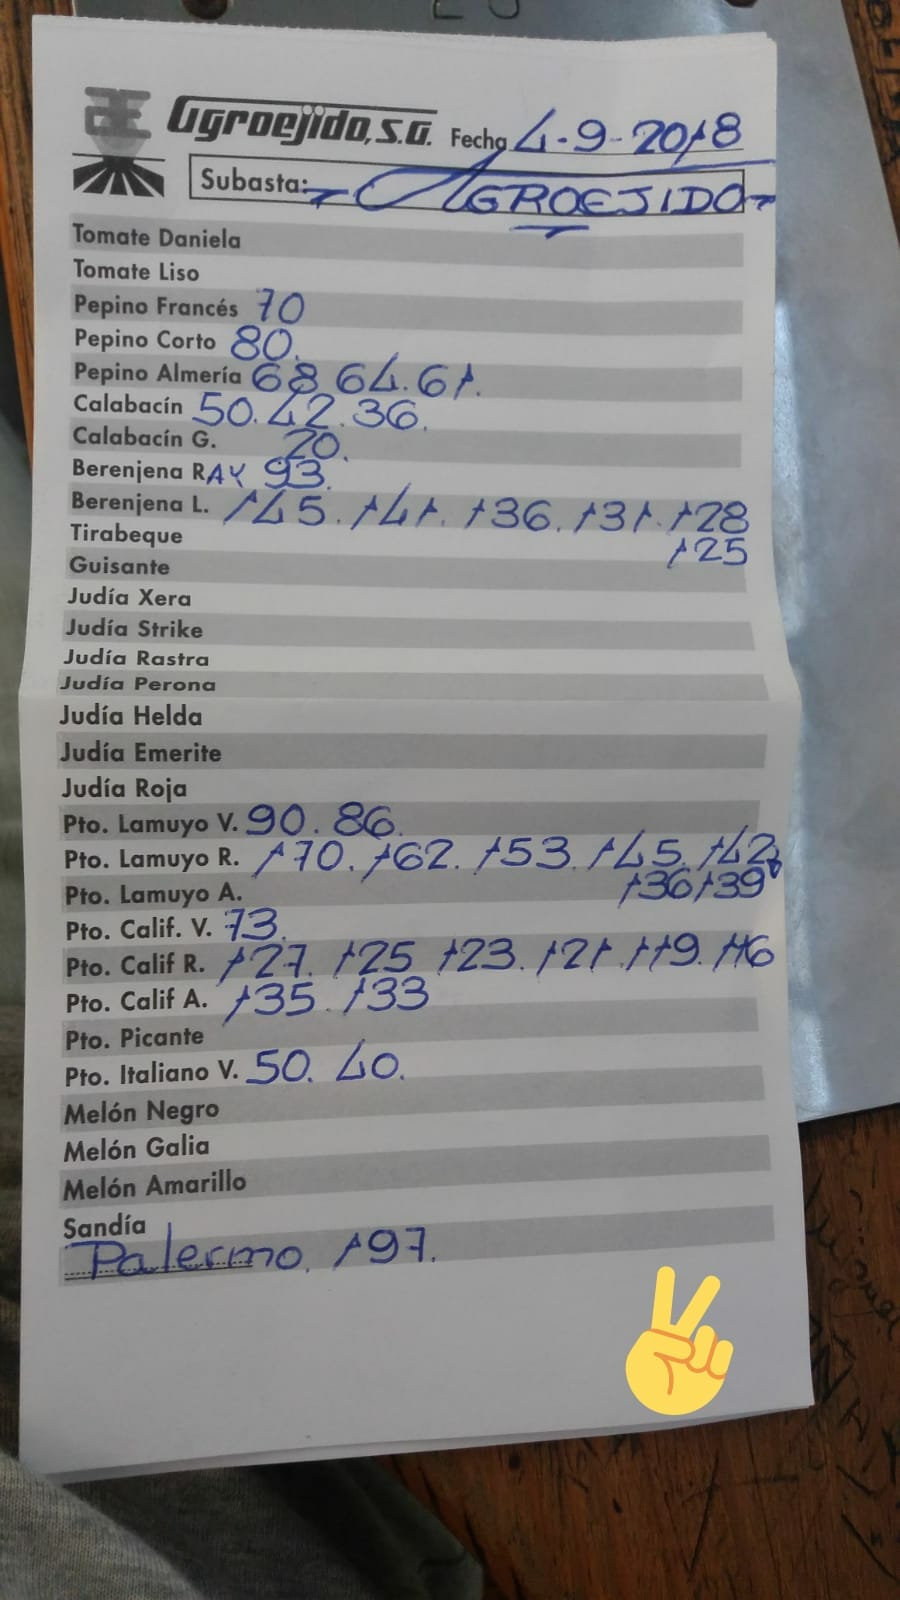 Agroejido, S.A. Fecha 4-9-2018
Subasta: AGROEJIDO
Tomate Daniela
Tomate Liso
Pepino Francés 70
Pepino Corto 80.
Pepino Almería 68 64. 61.
Calabacín 50. 42. 36.
Calabacín G. 20.
Berenjena RAY 93.
Berenjena L. 145. 141. 136. 131. 128
Tirabeque 125
Guisante
Judía Xera
Judía Strike
Judía Rastra
Judía Perona
Judía Helda
Judía Emerite
Judía Roja
Pto. Lamuyo V. 90. 86.
Pto. Lamuyo R. 170. 162. 153. 145. 142
Pto. Lamuyo A. 136 139
Pto. Calif. V. 73.
Pto. Calif R. 127. 125 123. 121. 119. 116
Pto. Calif A. 135. 133
Pto. Picante
Pto. Italiano V. 50. 40.
Melón Negro
Melón Galia
Melón Amarillo
Sandía
Palermo. 197.